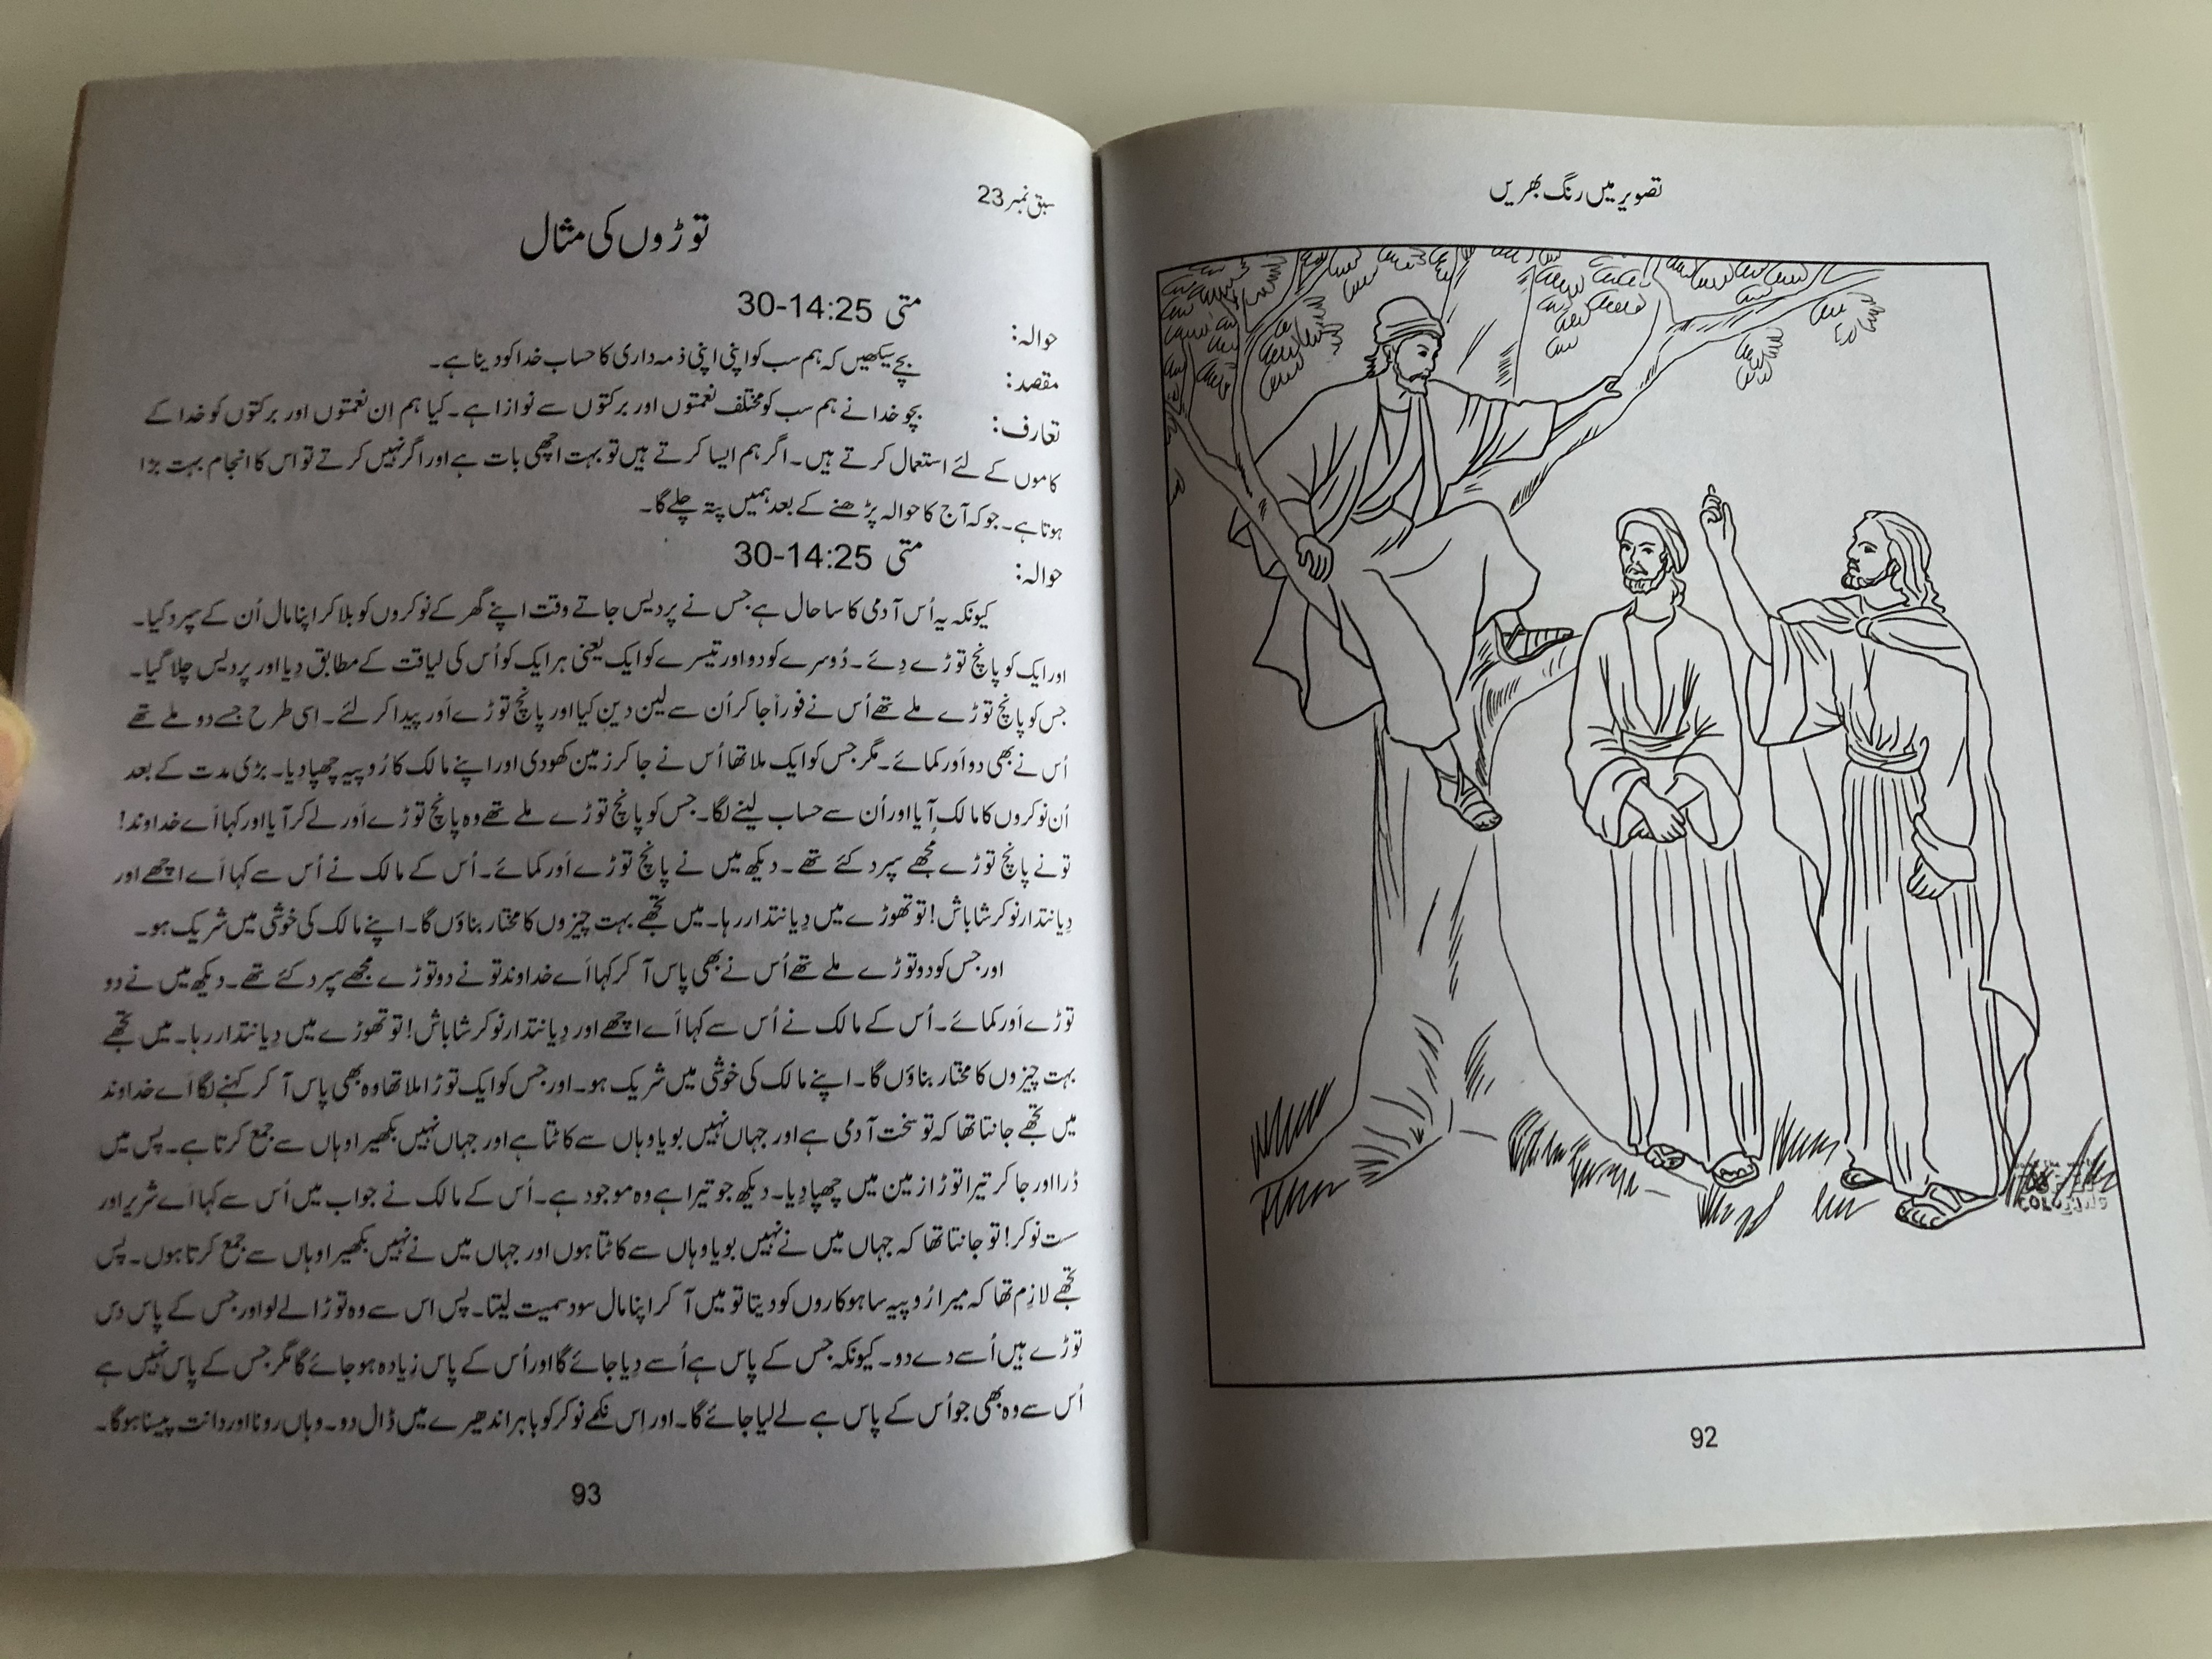 تصویر میں رنگ بھریں
92
سبق نمبر 23
توڑوں کی مثال
حوالہ: متی 14:25-30
مقصد: بچے سیکھیں کہ ہم سب کو اپنی اپنی ذمہ داری کا حساب خدا کو دینا ہے۔
تعارف: بچو خدا نے ہم سب کو مختلف نعمتوں اور برکتوں سے نوازا ہے۔ کیا ہم اِن نعمتوں اور برکتوں کو خدا کے
کاموں کے لئے استعمال کرتے ہیں۔ اگر ہم ایسا کرتے ہیں تو بہت اچھی بات ہے اور اگر نہیں کرتے تو اس کا انجام بہت بڑا
ہوتا ہے۔ جو کہ آج کا حوالہ پڑھنے کے بعد ہمیں پتہ چلے گا۔
حوالہ: متی 14:25-30
کیونکہ یہ اُس آدمی کا سا حال ہے جس نے پردیس جاتے وقت اپنے گھر کے نوکروں کو بلا کر اپنا مال اُن کے سپرد کیا۔
اور ایک کو پانچ توڑے دِئے۔ دُوسرے کو دو اور تیسرے کو ایک یعنی ہر ایک کو اُس کی لیاقت کے مطابق دِیا اور پردیس چلا گیا۔
جس کو پانچ توڑے ملے تھے اُس نے فوراً جا کر اُن سے لین دین کیا اور پانچ توڑے اَور پیدا کر لئے۔ اسی طرح جسے دو ملے تھے
اُس نے بھی دو اَور کمائے۔ مگر جس کو ایک ملا تھا اُس نے جا کر زمین کھودی اور اپنے مالک کا رُوپیہ چھپا دِیا۔ بڑی مدت کے بعد
اُن نوکروں کا مالک آیا اور اُن سے حساب لینے لگا۔ جس کو پانچ توڑے ملے تھے وہ پانچ توڑے اَور لے کر آیا اور کہا اَے خداوند!
تو نے پانچ توڑے مُجھے سپرد کئے تھے۔ دیکھ میں نے پانچ توڑے اَور کمائے۔ اُس کے مالک نے اُس سے کہا اَے اچھے اور
دِیانتدار نوکر شاباش! تو تھوڑے میں دِیانتدار رہا۔ میں تجھے بہت چیزوں کا مختار بناؤں گا۔ اپنے مالک کی خوشی میں شریک ہو۔
اور جس کو دو توڑے ملے تھے اُس نے بھی پاس آ کر کہا اَے خداوند تو نے دو توڑے مجھے سپرد کئے تھے۔ دیکھ میں نے دو
توڑے اَور کمائے۔ اُس کے مالک نے اُس سے کہا اَے اچھے اور دِیانتدار نوکر شاباش! تو تھوڑے میں دِیانتدار رہا۔ میں تجھے
بہت چیزوں کا مختار بناؤں گا۔ اپنے مالک کی خوشی میں شریک ہو۔ اور جس کو ایک توڑا ملا تھا وہ بھی پاس آ کر کہنے لگا اَے خداوند
میں تجھے جانتا تھا کہ تو سخت آدمی ہے اور جہاں نہیں بویا وہاں سے کاٹتا ہے اور جہاں نہیں بکھیرا وہاں سے جمع کرتا ہے۔ پس میں
ڈرا اور جا کر تیرا توڑا زمین میں چھپا دِیا۔ دیکھ جو تیرا ہے وہ موجود ہے۔ اُس کے مالک نے جواب میں اُس سے کہا اَے شریر اور
ست نوکر! تو جانتا تھا کہ جہاں میں نے نہیں بویا وہاں سے کاٹتا ہوں اور جہاں میں نے نہیں بکھیرا وہاں سے جمع کرتا ہوں۔ پس
تجھے لازِم تھا کہ میرا رُوپیہ ساہوکاروں کو دیتا تو میں آ کر اپنا مال سود سمیت لیتا۔ پس اس سے وہ توڑا لے لو اور جس کے پاس دس
توڑے ہیں اُسے دے دو۔ کیونکہ جس کے پاس ہے اُسے دِیا جائے گا اور اُس کے پاس زِیادہ ہو جائے گا مگر جس کے پاس نہیں ہے
اُس سے وہ بھی جو اُس کے پاس ہے لے لیا جائے گا۔ اور اِس نکمے نوکر کو باہر اندھیرے میں ڈال دو۔ وہاں رونا اور دانت پیسنا ہوگا۔
93